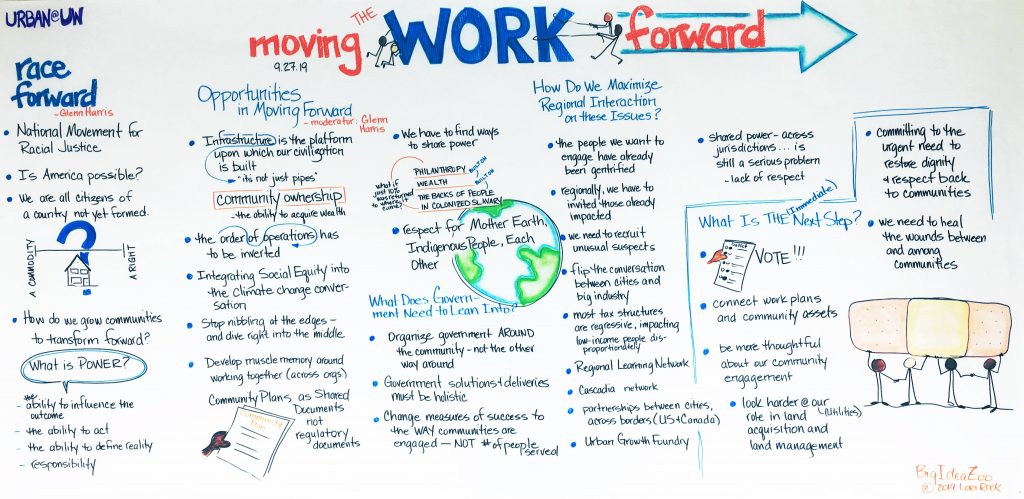 URBAN@UN
moving THE WORK forward
9.27.19
race
forward
-Glenn Harris
• National Movement for
Racial Justice
• Is America possible?
• We are all citizens of
a country not yet formed.
A COMMODITY
?
A RIGHT
• How do we grow communities
to transform forward?
What is POWER?
- the ability to influence the
outcome
- the ability to act
- the ability to define reality
- responsibility
Opportunities
in Moving Forward
- moderator: Glenn
Harris
• Infrastructure is the platform
upon which our civilization
is built
- "it's not just pipes"
community ownership
- the ability to acquire wealth
• the order of operations has
to be inverted
• Integrating Social Equity into
the Climate change conver-
sation
• Stop nibbling at the edges -
and dive right into the middle.
• Develop muscle memory around
working together (across orgs)
Community Plans as Shared
Documents
not
regulatory
documents
Community
Plan
• We have to find ways
to share power
what if
just 10%
was returned
to where it
came?
PHILANTHROPY
BUILT ON
WEALTH
BUILT ON
THE BACKS OF PEOPLE
IN COLONIZED SLAVARY
• respect for Mother Earth,
Indigenous People, Each
Other
What Does Govern-
ment Need to Lean Into?
• Organize government AROUND
the community - not the other
way around
• Government solutions & deliveries
must be holistic
• Change measures of success to
the WAY communities are
engaged - NOT # of people served
How Do We Maximize
Regional Interaction
on these Issues?
• the people we want to
engage have already
been gentrified
• regionally, we have to
invited those already
impacted
• we need to recruit
unusual suspects
• flip the conversation
between cities and
big industry
• most tax structures
are regressive, impacting
low-income people dis-
proportionately
• Regional Learning Network
• Cascadia network
• partnerships between cities,
across borders (US & Canada)
• Urban Growth Foundry
• shared power - across
jurisdictions... is
still a serious problem
- lack of respect
What Is THE (Immediate) Next Step?
• VOTE!!!
• connect work plans
and community assets
• be more thoughtful
about our community
engagement
• look harder @ our
role in land (Utilities)
acquisition and
land management
• committing to the
urgent need to
restore dignity
& respect back
to communities
• we need to heal
the wounds between
and among
communities
BigIdeaZoo
© 2019 Lori Rock